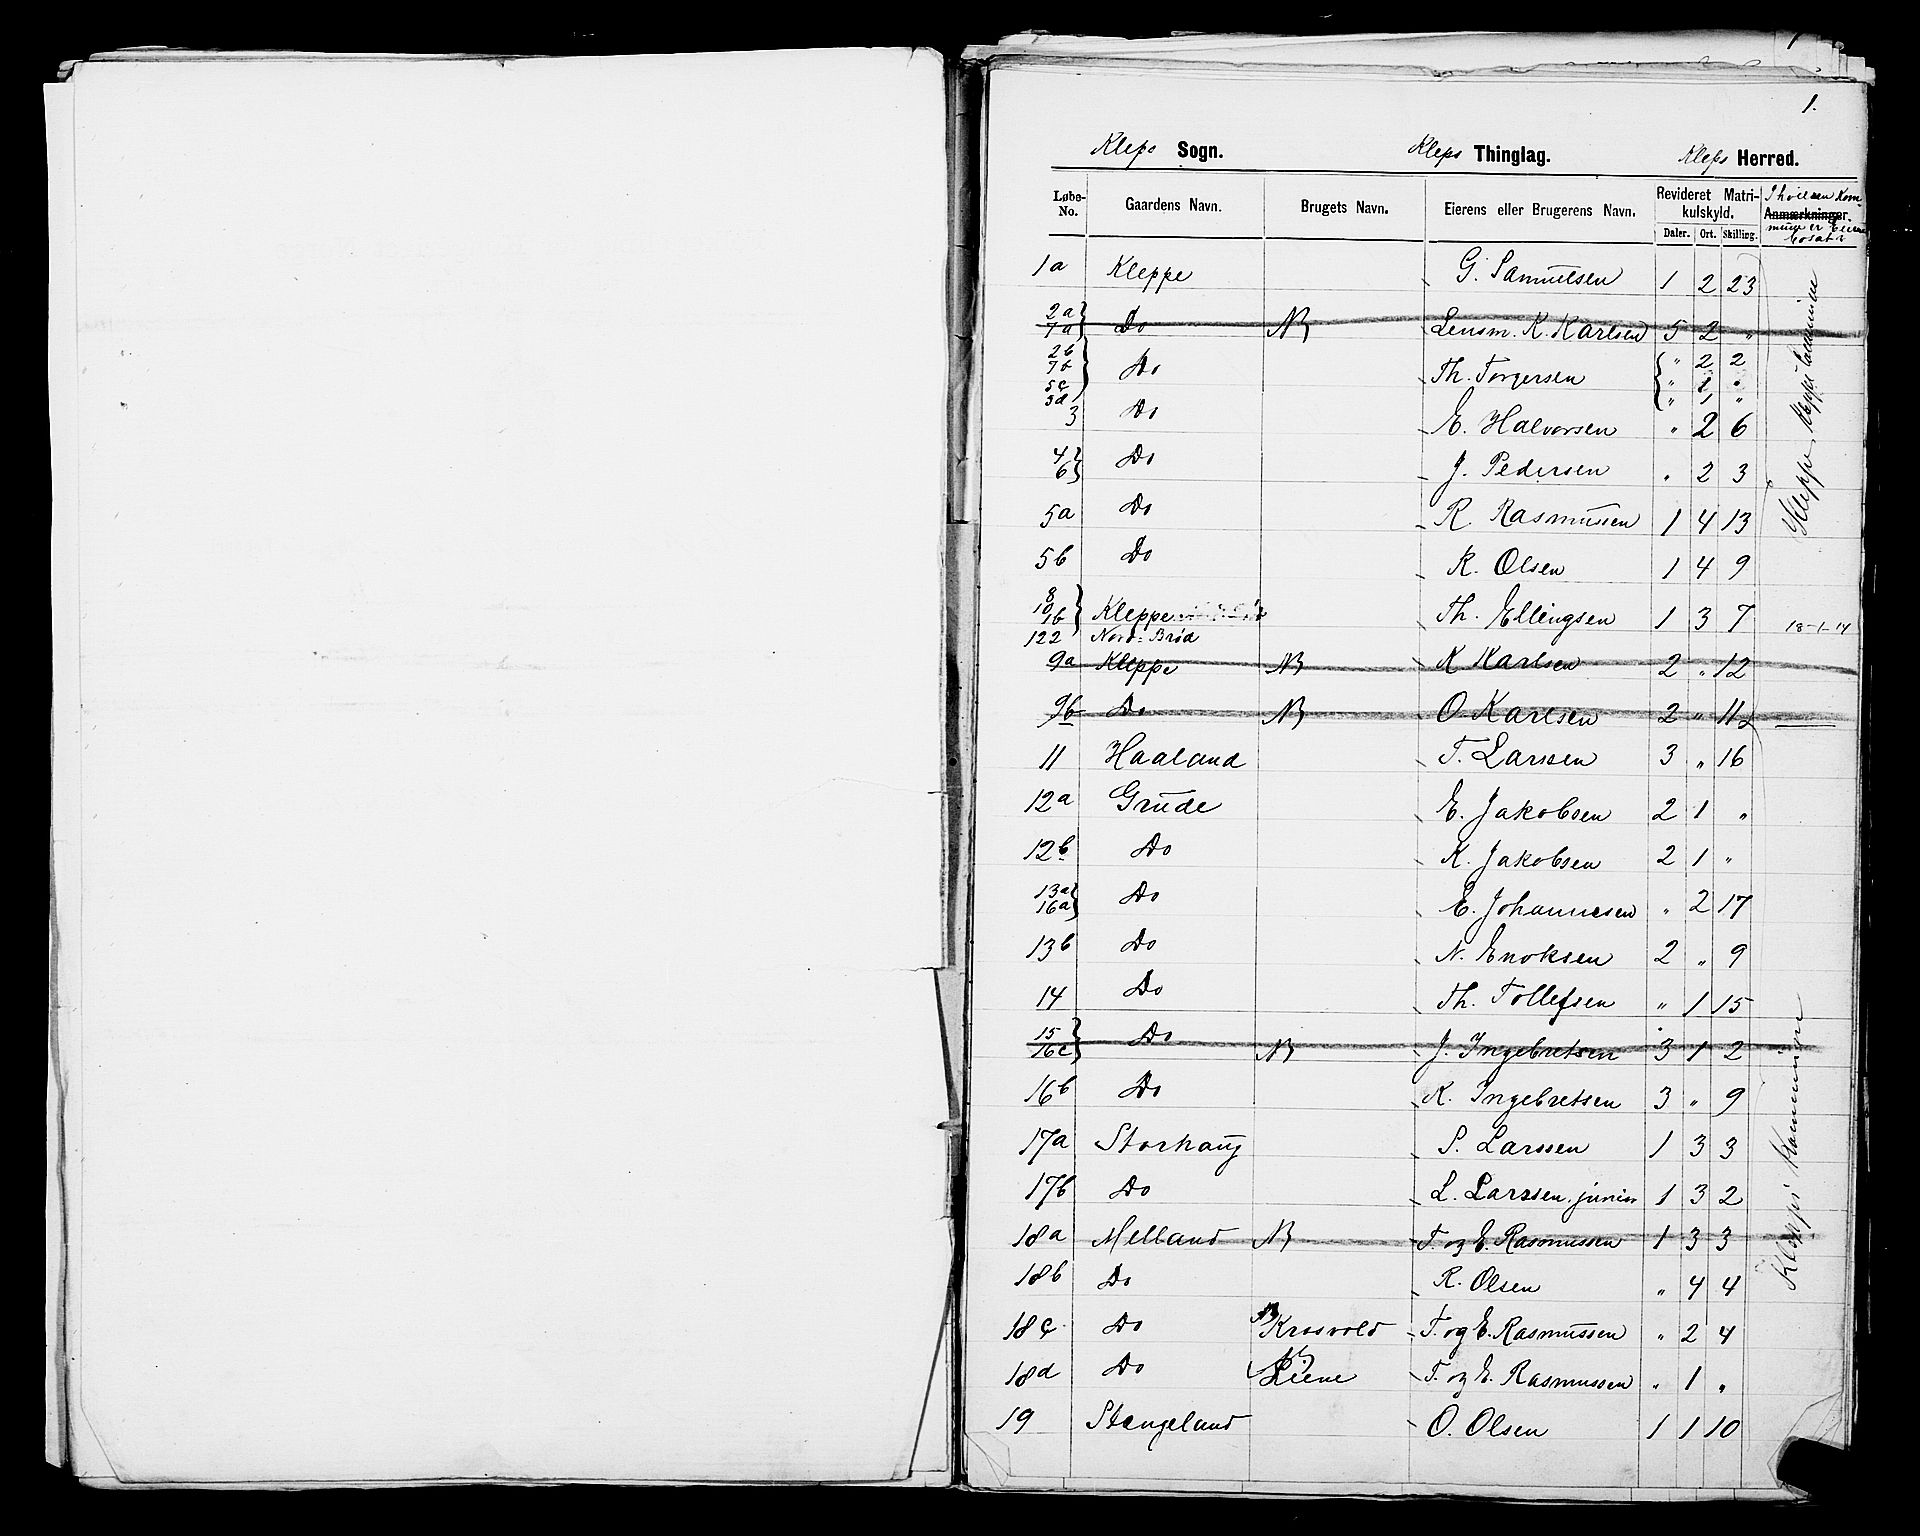 1.
Klepp Sogn. Klepp Thinglag. Klepp Herred.
Løbe-No. Gaardens Navn. Brugets Navn. Eierens eller Brugerens Navn. Revideret Matrikulskyld. Daler. Ort. Skilling. Anmærkninger. I hvilken Kommune er Eieren bosat?
1a Kleppe G. Samuelsen 1 2 23
2a 7a Do NB Lensm. K. Karlsen 5 2 "
2b 7b 5c 3d Do Th. Torgersen " 2 2 " 1 " " 1 "
3 Do E. Halvorsen " 2 6
4 6 Do J. Pedersen " 2 3
5a Do R. Rasmussen 1 4 13
5b Do K. Olsen 1 4 9
8 10 1b Kleppe Th. Ellingsen 1 3 7
122 Nord-Brød 18-1-14
9a Kleppe NB K Karlsen 2 " 12
9b Do NB O. Karlsen 2 " 11
Kleppe Kleppe Kommune
11 Haaland T. Larssen 3 " 16
12a Grude E. Jakobsen 2 1 "
12b Do K. Jakobsen 2 1 "
13a 16a Do E. Johannesen " 2 17
13b Do N. Enoksen 2 " 9
14 Do Th. Tollefsen " 1 15
15 16c Do NB J. Ingebretsen 3 1 2
16b Do K. Ingebretsen 3 " 9
17a Storhaug S. Larssen 1 3 3
17b Do L. Larssen junior 1 3 2
18a Melland NB T. og E. Rasmussen 1 3 3
18b Do R. Olsen " 4 4
18c Do NB Krosvold T. og E. Rasmussen " 2 4
18d Do NB Liene T. og E. Rasmussen " 1 "
19 Stangeland O. Olsen 1 1 10
Klepps Kommune